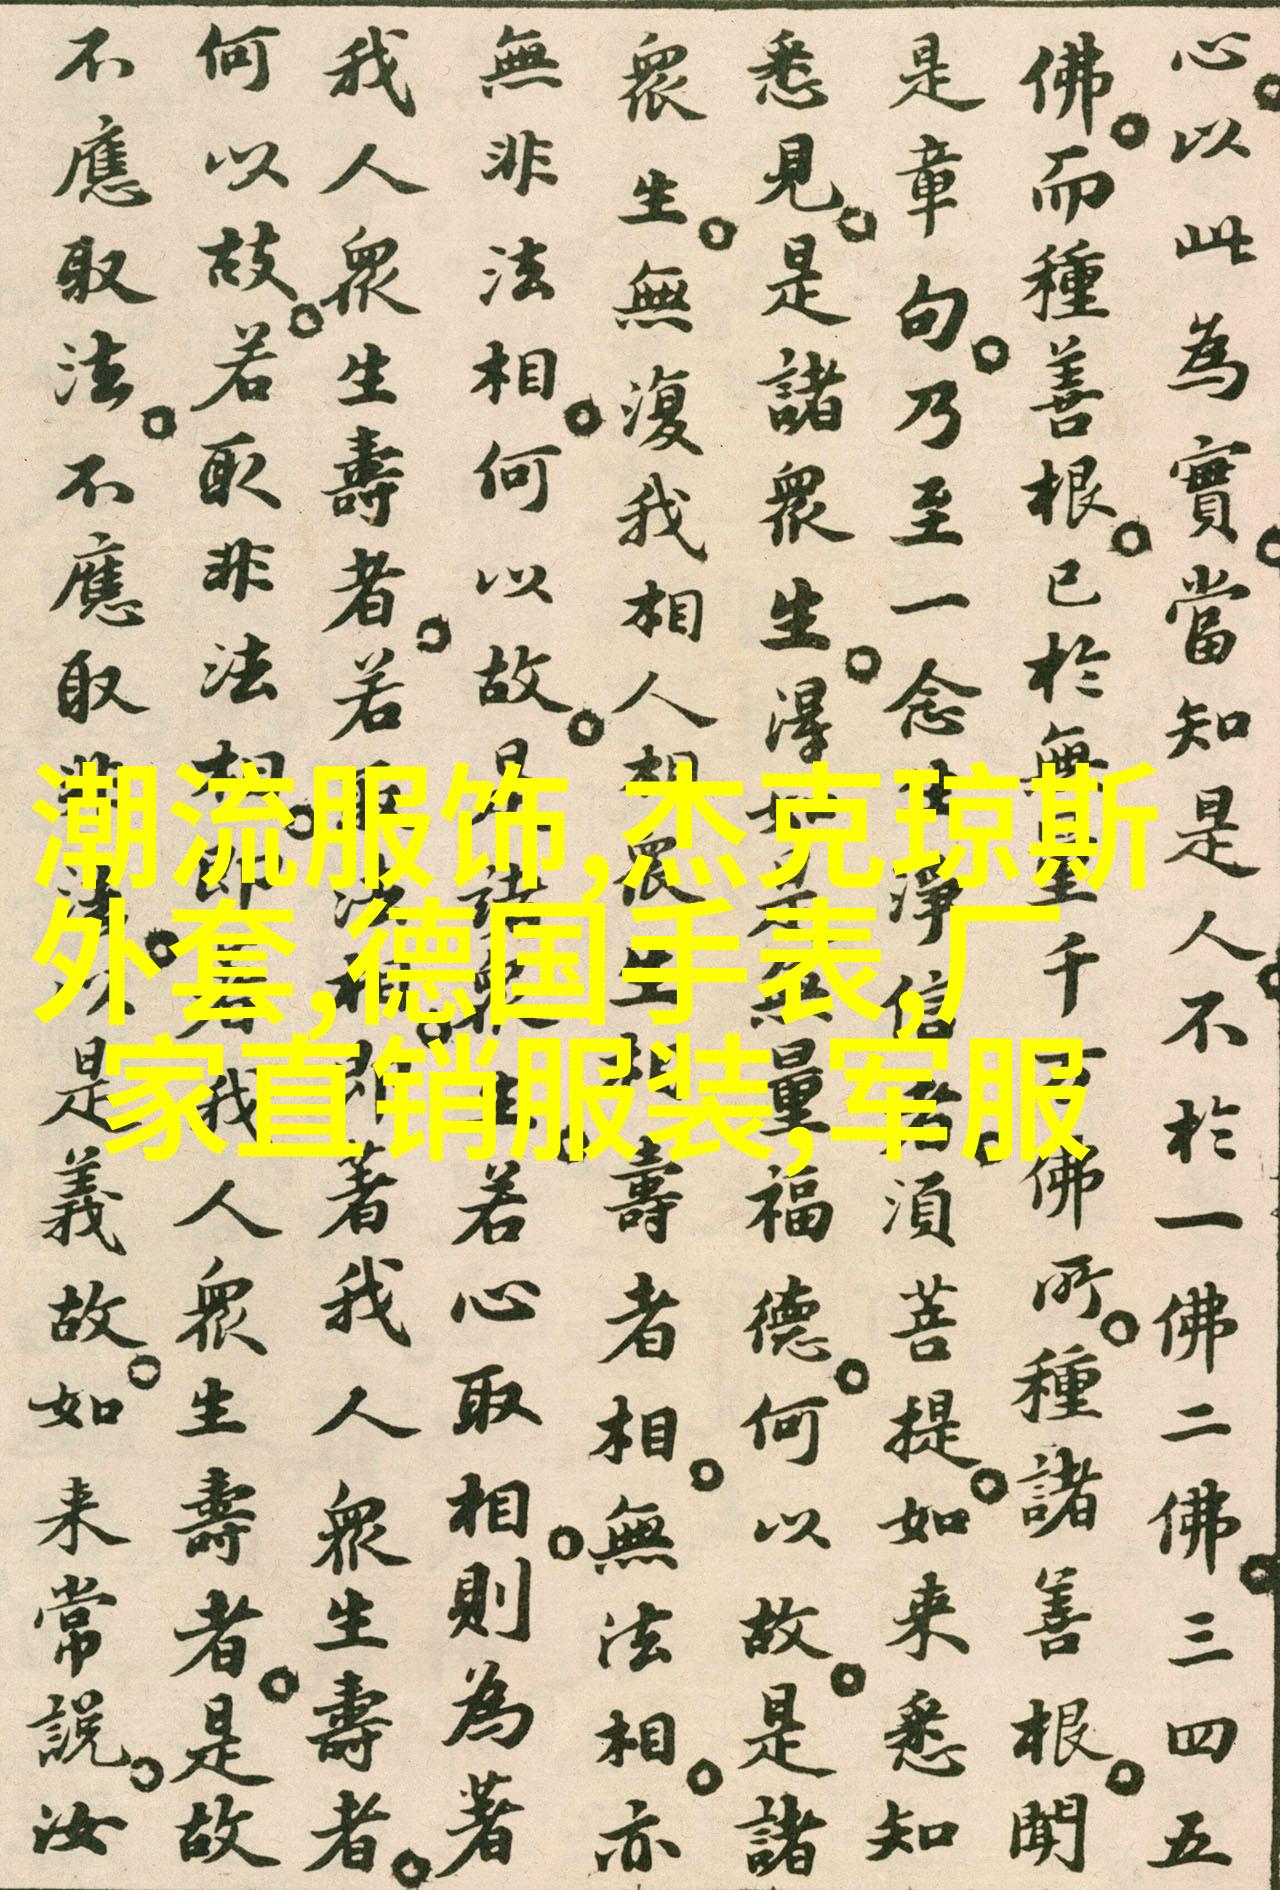 心。以此為實。當知是人。不於一佛二佛。三四五
佛。而種善根。已於無量千万佛所。種諸善根。聞
是章句。乃至一念生淨信者。須菩提。如来悉知
悉見。是諸衆生。得如是無量福德。何以故。是諸
衆生。無復我相人相衆生相壽者相。無法相。亦
無非法相。何以故。是諸衆生。若心取相。則為著
我人衆生壽者。若取法相。即著我人衆生壽者。
何以故。若取非法相。即著我人衆生壽者。是故
不應取法。不應取非法。以是義故。如来常說。汝
潮流服饰,杰克琼斯
外套,德国手表,厂
家直销服装,军服